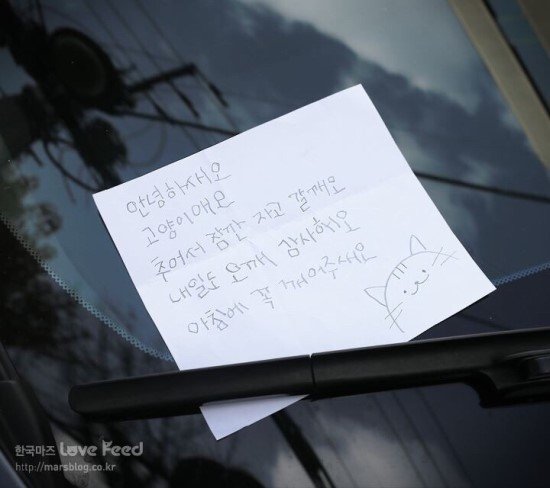 안녕하새오
고양이애오
추어서 잠깐 자고 갈깨오
내일도 오깨 감사해오
아침에 꼭 깨어주새오
한국마즈 Love Feed
http://marsblog.co.kr